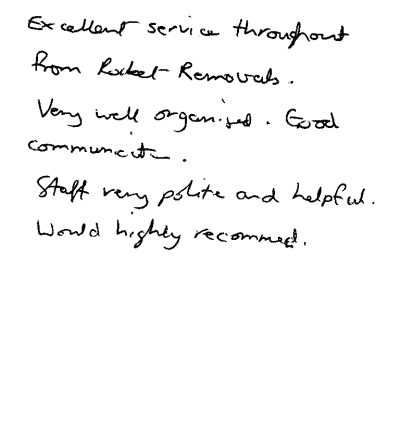 Excellent service throughout
from Rocket Removals.
Very well organised. Good
communication.
Staff very polite and helpful.
Would highly recommed.